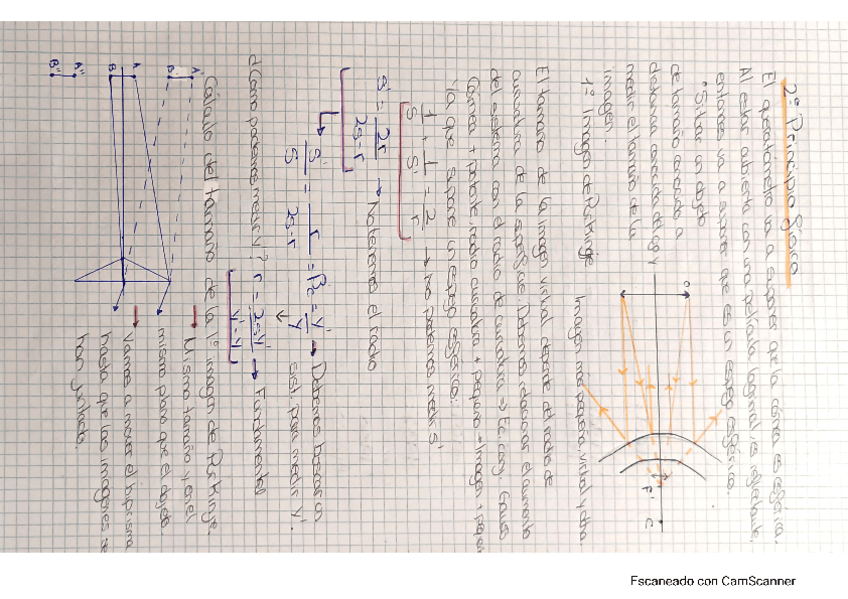 2º Principio físico
El queratómetro va a suponer que la córnea es esférica.
Al estar cubierta con una película lagrimal, es reflectante,
entonces va a suponer que es un espejo esférico.
* Situar un objeto
de tamaño conocido a
distancia conocida del ojo y
medir el tamaño de la
imagen.
1º Imagen de Purkinje
Imagen más pequeña, virtual y dcha.
O
F' C
El tamaño de la imagen virtual depende del radio de
curvatura de la superficie. Debemos relacionar el aumento
del sistema con el radio de curvatura → Ec. conj. Gauss
Córnea + potente, radio curvatura + pequeño → Imagen + pequeña
Ya que supone un espejo esférico:
1/S + 1/S' = 2/r → No podemos medir S'
S' = 2r/2s-r → No tenemos el radio
S'/S = r/2s-r = βc = y'/y → Debemos buscar un
sist para medir y'.
¿Cómo podemos medir y'? r = 2sy'/y'-y → Fundamental
Cálculo del tamaño de la 1º imagen de Purkinje.
→ Mismo tamaño y en el
mismo plano que el objeto.
→ Vamos a mover el biprisma
hasta que las imágenes se
han juntado.
A'
B'
A
B
A''
B''
Escaneado con CamScanner